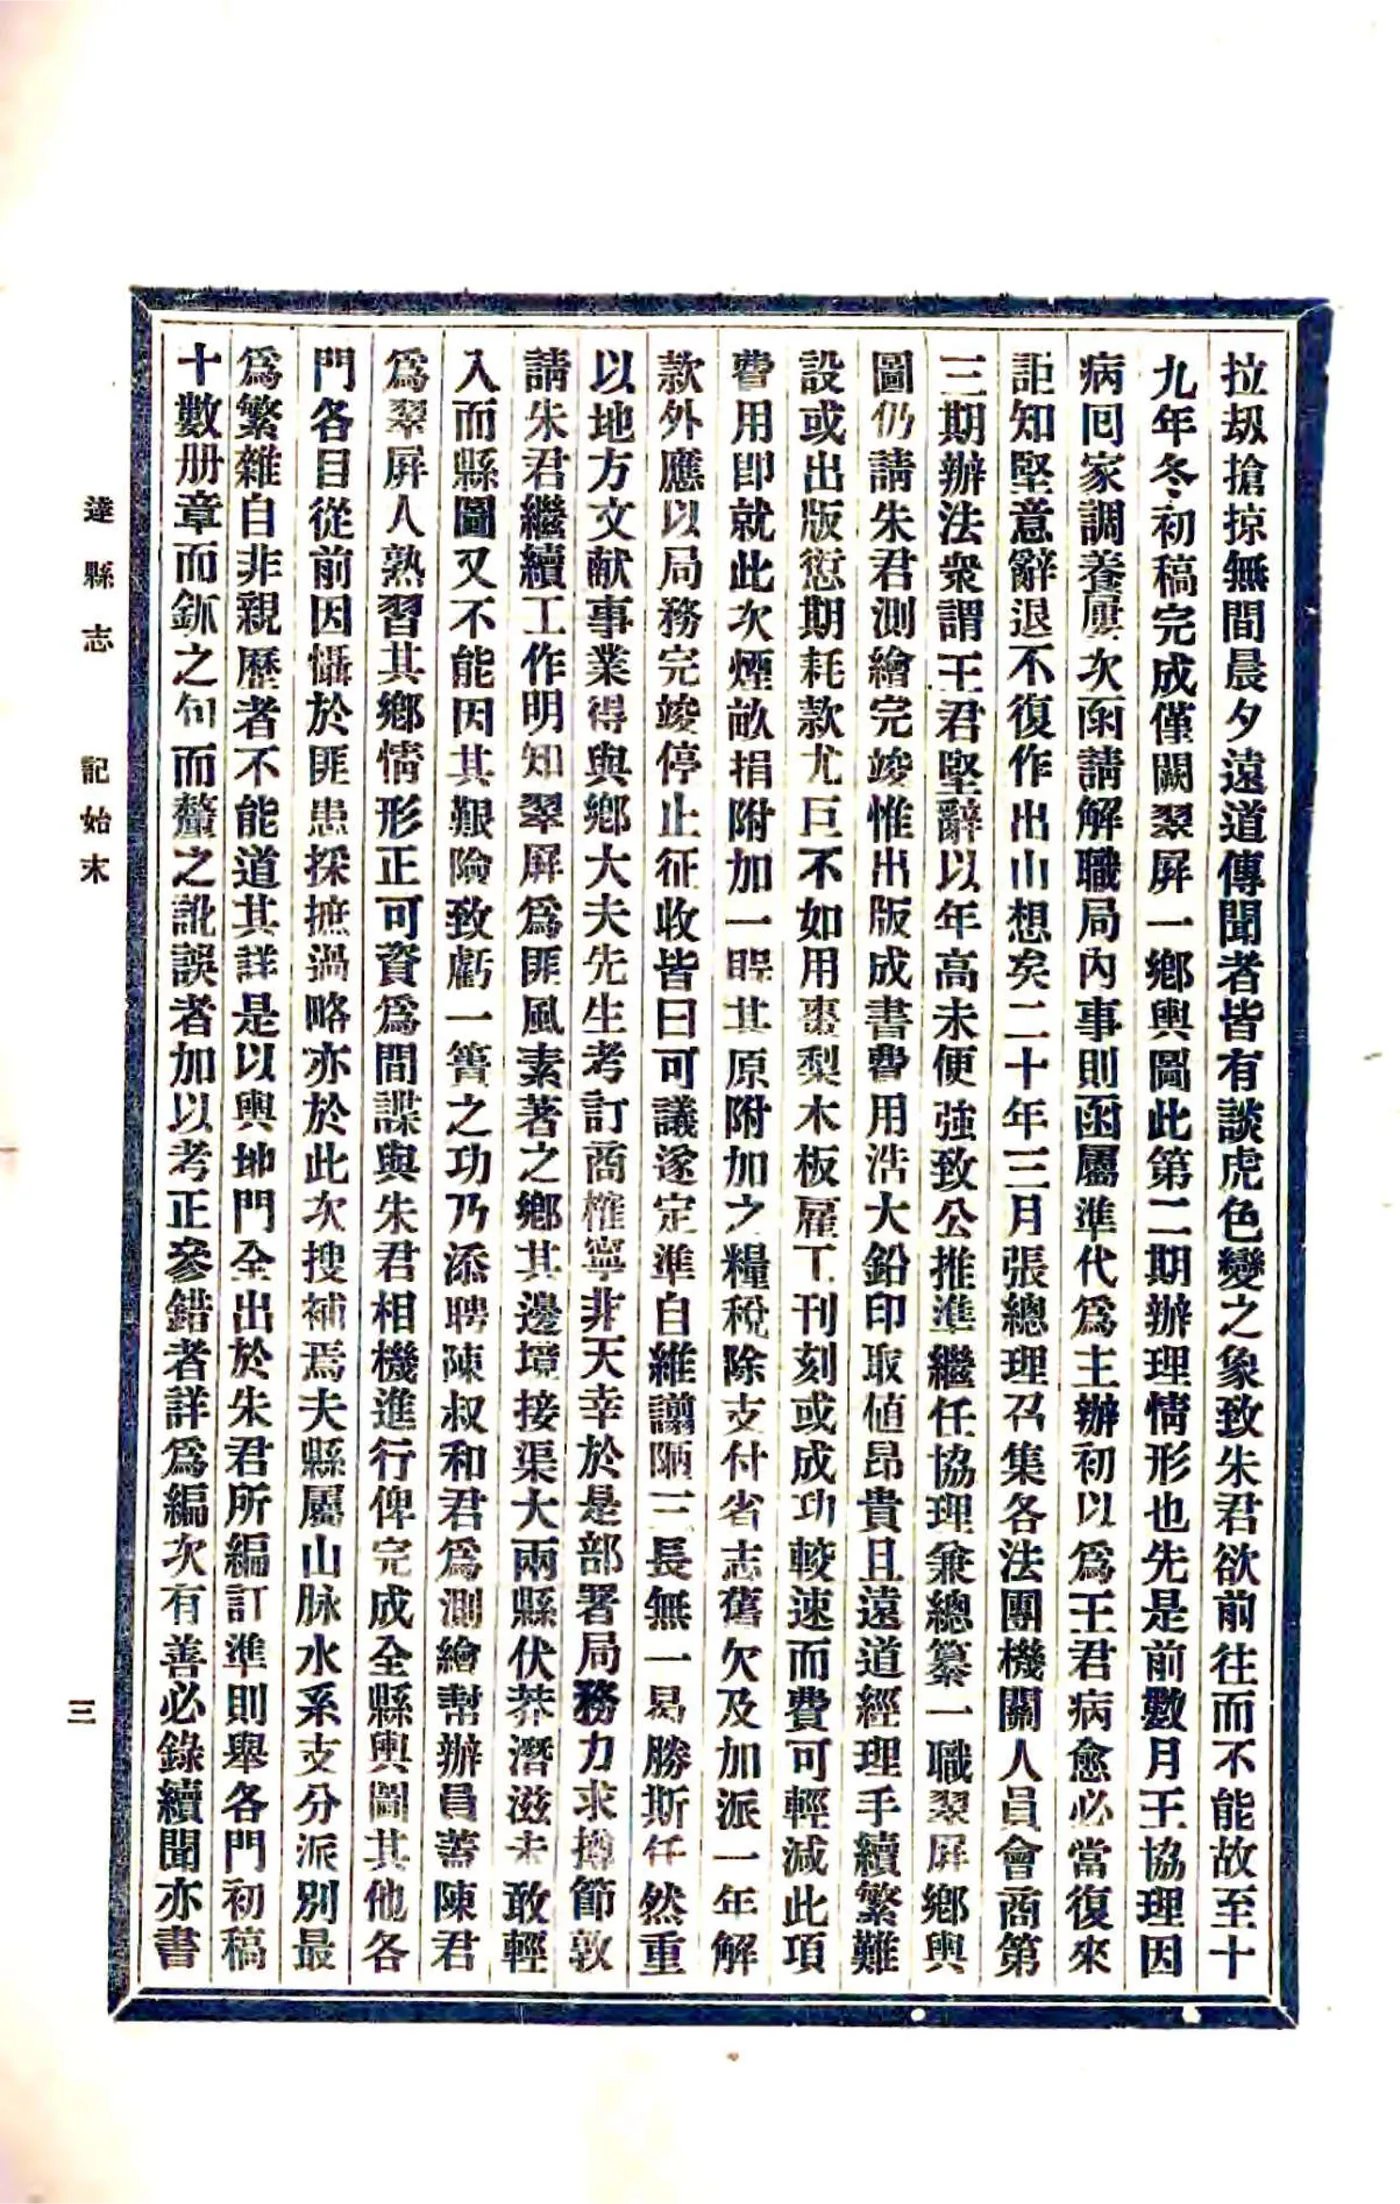 拉刼搶掠無間晨夕遠道傳聞者皆有談虎色變之象致朱君欲前往而不能故至十
九年冬初稿完成僅闕翠屛一鄉輿圖此第二期辦理情形也先是前數月王協理因
病回家調養屢次函請解職局內事則函屬準代爲主辦初以爲王君病愈必當復來
詎知堅意辭退不復作出山想矣二十年三月張總理召集各法團機關人員會商第
三期辦法衆謂王君堅辭以年高未便強致公推準繼任協理兼總纂一職翠屛鄉輿
圖仍請朱君測繪完竣惟出版成書費用浩大鉛印取値昂貴且遠道經理手續繁難
設或出版愆期耗款尤巨不如用棗梨木板雇工刊刻或成功較速而費可輕減此項
費用卽就此次煙畝捐附加一賬其原附加之糧稅除支付省志舊欠及加派一年解
款外應以局務完竣停止征收皆曰可議遂定準自維譾陋三長無一曷勝斯任然重
以地方文献事業得與鄉大夫先生考訂商榷寧非天幸於是部署局務力求撙節敦
請朱君繼續工作明知翠屛爲匪風素著之鄉其邊境接渠大兩縣伏莽潛滋未敢輕
入而縣圖又不能因其艱險致虧一簣之功乃添聘陳叔和君爲測繪幇辦員蓋陳君
爲翠屛人熟習其鄉情形正可資爲間諜與朱君相機進行俾完成全縣輿圖其他各
門各目從前因懾於匪患採摭過略亦於此次搜補焉夫縣屬山脉水系支分派別最
爲繁雜自非親歷者不能道其詳是以輿地門全出於朱君所編訂準則舉各門初稿
十數册章而鉥之句而釐之訛誤者加以考正參錯者詳爲編次有善必錄續聞亦書
達縣志 記始末 三